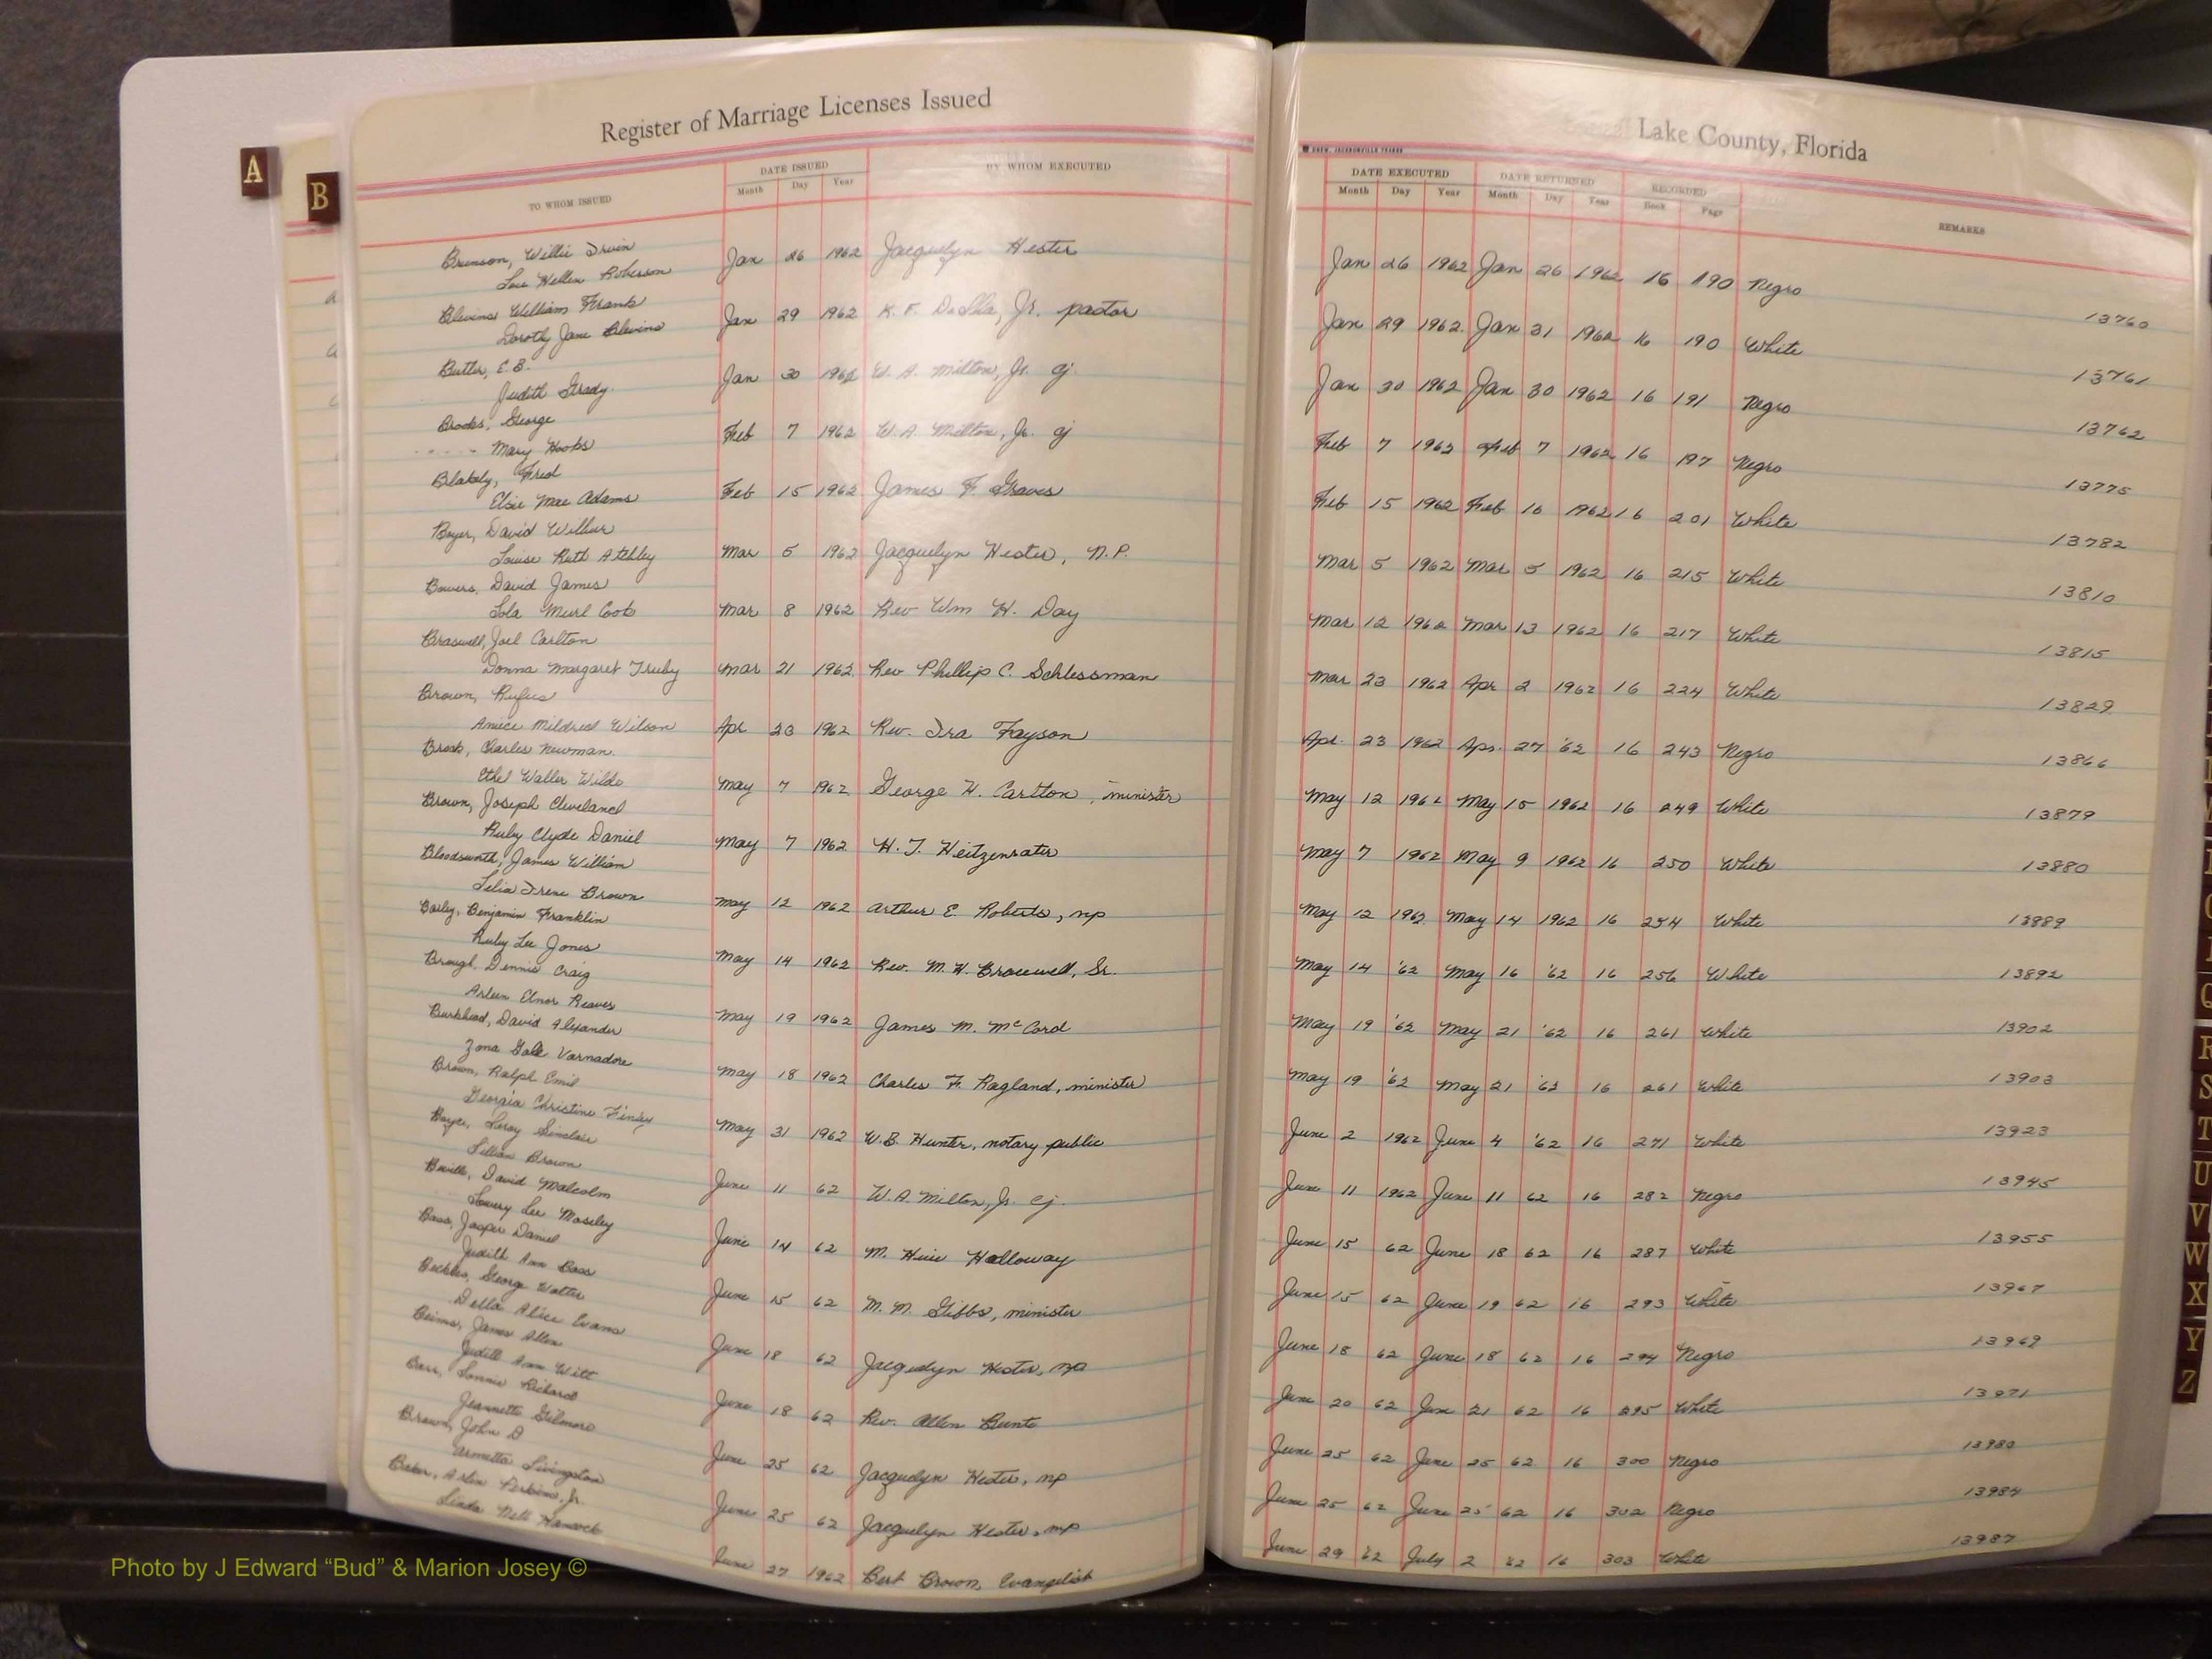 Register of Marriage Licenses Issued
Lake County, Florida
A
B
TO WHOM ISSUED
DATE ISSUED
Month Day Year
BY WHOM EXECUTED
DATE EXECUTED
Month Day Year
DATE RETURNED
Month Day Year
RECORDED
Book Page
REMARKS
Brunson, Willie Irvin
Lou Hellen Roberson
Jan 26 1962 Jacquelyn Hester
Jan 26 1962 Jan 26 1962 16 190 Negro
13760
Blevins William Frank
Dorothy Jane Blevins
Jan 29 1962 K. F. Jr. pastor
Jan 29 1962 Jan 31 1962 16 190 White
13761
Butler, E.B.
Judith Grady
Jan 30 1962 W. A. Milton, Jr. cj.
Jan 30 1962 Jan 30 1962 16 191 Negro
13762
Brooks, George
Mary Hooks
Feb 7 1962 W. A. Milton, Jr. cj
Feb 7 1962 Feb 7 1962 16 197 Negro
13775
Blakely, Fred
Elsie Mae Adams
Feb 15 1962 James F. Graves
Feb 15 1962 Feb 16 1962 16 201 White
13782
Boyer, David Wilbur
Louise Ruth Atchley
Mar 5 1962 Jacquelyn Hester, N.P.
Mar 5 1962 Mar 5 1962 16 215 White
13810
Bowers, David James
Lola Murl Cook
Mar 8 1962 Rev Wm H. Day
Mar 12 1962 Mar 13 1962 16 217 White
13815
Braswell, Joel Carlton
Donna Margaret Truby
Mar 21 1962 Rev Phillip C. Schlessman
Mar 23 1962 Apr 2 1962 16 224 White
13829
Brown, Rufus
Aniece Mildred Wilson
Apr 23 1962 Rev. Ira Fayson
Apr. 23 1962 Apr. 27 '62 16 243 Negro
13866
Brock, Charles Newman.
Ethel Waller Wilde
May 7 1962 George H. Carlton, minister
May 12 1962 May 15 1962 16 249 White
13879
Brown, Joseph Cleveland
Ruby Clyde Daniel
May 7 1962 H. T. Heitzenrater
May 7 1962 May 9 1962 16 250 White
13880
Bloodsworth, James William
Lelia Irene Brown
May 12 1962 Arthur E. Roberts, np
May 12 1962 May 14 1962 16 254 White
13889
Bailey, Benjamin Franklin
Ruby Lee Jones
May 14 1962 Rev. M. H. Sr.
May 14 '62 May 16 '62 16 256 White
13892
Brough, Dennis Craig
Arleen Elnor Reaves
May 19 1962 James M. McCord
May 19 '62 May 21 '62 16 261 White
13902
Burkhead, David Alexander
Zona Gale Varnadore
May 18 1962 Charles F. Ragland, minister
May 19 '62 May 21 '62 16 261 White
13903
Brown, Ralph Emil
Georgia Christine Finley
May 31 1962 W.B. Hunter, notary public
June 2 1962 June 4 '62 16 271 White
13923
Boyce, Leroy Sinclair
Lillian Brown
June 11 62 W.A Milton, Jr. cj.
June 11 1962 June 11 62 16 282 Negro
13945
Beville, David Malcolm
Lowery Lee Moseley
June 14 62 M. Huie Holloway
June 15 62 June 18 62 16 287 White
13955
Bass, Jasper Daniel
Judith Ann Bass
June 15 62 M. M. Gibbs, minister
June 15 62 June 19 62 16 293 White
13967
Beckles, George Walter
Della Alice Evans
June 18 62 Jacquelyn Hester, np
June 18 62 June 18 62 16 294 Negro
13969
Beims, James Allen
Judith Ann Witt
June 18 62 Rev. Allen Bunts
June 20 62 June 21 62 16 295 White
13971
Barr, Lonnie Richard
Jeannette Gilmore
June 25 62 Jacquelyn Hester, np
June 25 62 June 25 62 16 300 Negro
13980
Brown, John D
Armetta Livingston
June 25 62 Jacquelyn Hester, np
June 25 62 June 25 62 16 302 Negro
13984
Baker, Arlin Perkins, Jr.
Linda Nell Hancock
June 27 1962 Bert Brown, Evangelist
June 29 62 July 2 62 16 303 White
13987
Q
R
S
T
U
V
W
X
Y
Z
Photo by J Edward “Bud” & Marion Josey ©